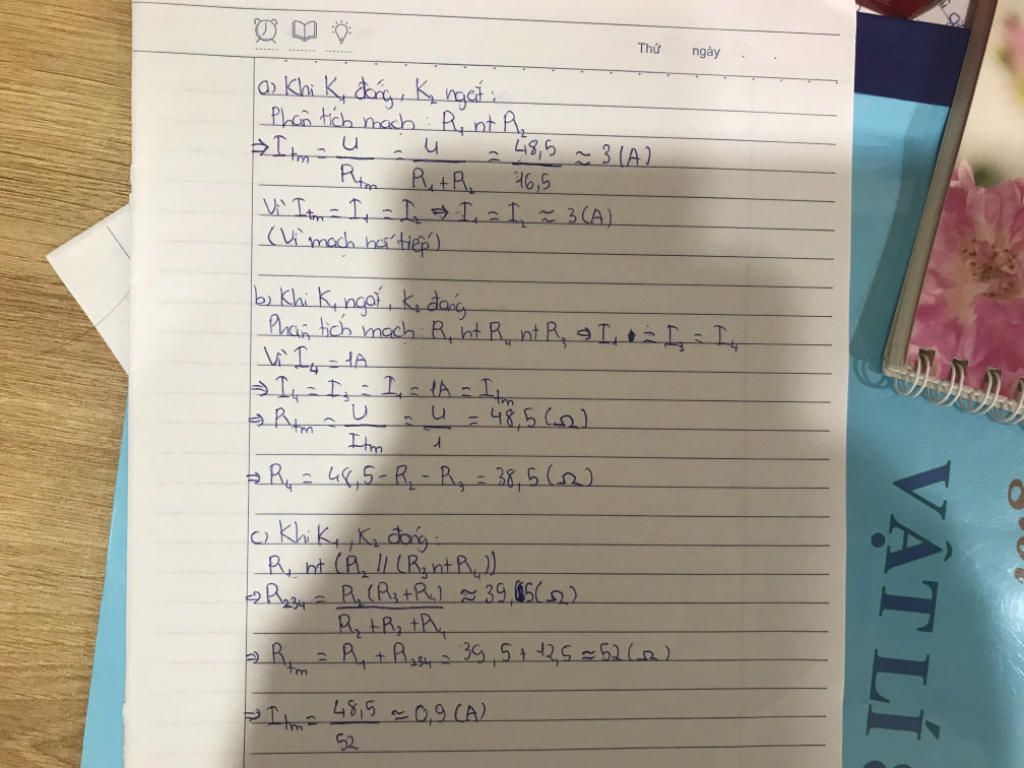 Thứ ngày . .
a) Khi K₁ đóng, K₂ ngắt:
Phân tích mạch: R₁ nt R₂
⇒ Itm = U/Rtm = U/(R₁+R₂) = 48,5/16,5 ≈ 3(A)
Vì Itm = I₁ = I₂ ⇒ I₁ = I₂ ≈ 3(A)
(Vì mạch nối tiếp)
b) Khi K₁ ngắt, K₂ đóng
Phân tích mạch: R₁ nt R₄ nt R₃ ⇒ I₁ = I₃ = I₄
Vì I₄ = 1A
⇒ I₄ = I₃ = I₁ = 1A = Itm
⇒ Rtm = U/Itm = U/1 = 48,5(Ω)
⇒ R₄ = 48,5 - R₂ - R₃ = 38,5(Ω)
c) Khi K₁, K₂ đóng:
R₁ nt (R₂ // (R₃ nt R₄))
⇒ R₂₃₄ = R₂(R₃+R₄)/(R₂+R₃+R₄) ≈ 39,5(Ω)
⇒ Rtm = R₁ + R₂₃₄ = 39,5 + 12,5 ≈ 52(Ω)
⇒ Itm = 48,5/52 ≈ 0,9(A)
VẬT LÍ 8